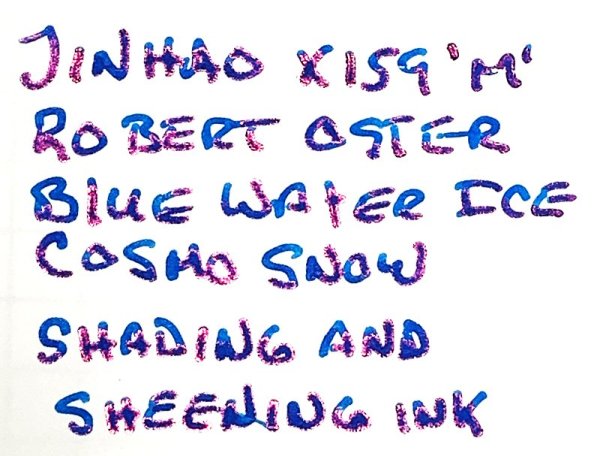 JINHAO X159 'M'
ROBERT OSTER
BLUE WATER ICE
COSMO SNOW
SHADING AND
SHEENING INK